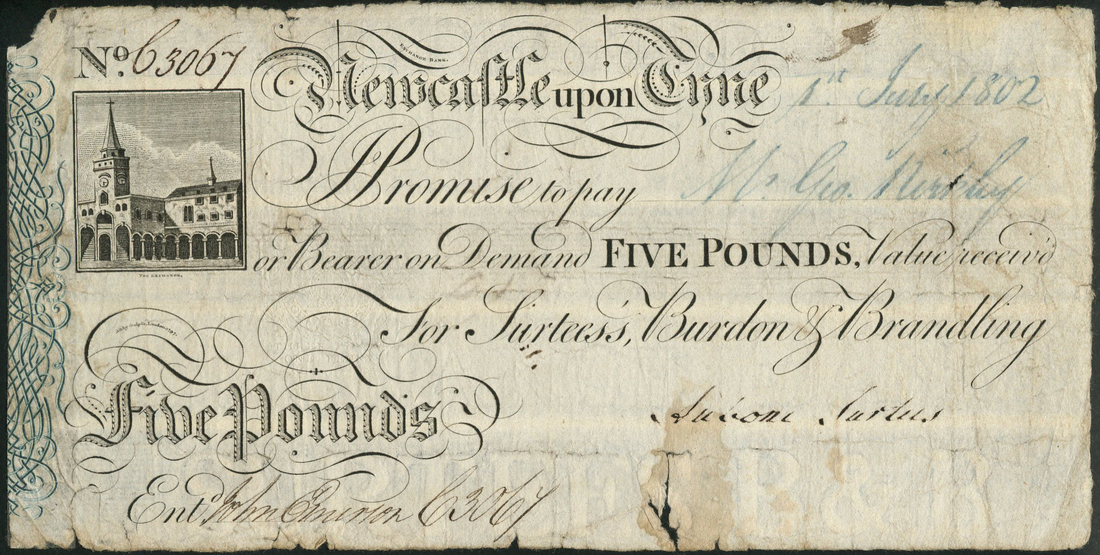 No. 63067
EXCHANGE BANK.
Newcastle upon Tyne 1st July 1802
Promise to pay Mr. Geo.
or Bearer on Demand FIVE POUNDS, Value receiv'd
THE EXCHANGE.
For Surtees's, Burdon & Brandling
Five Pounds
Surtees
Entd John Emerson 63067